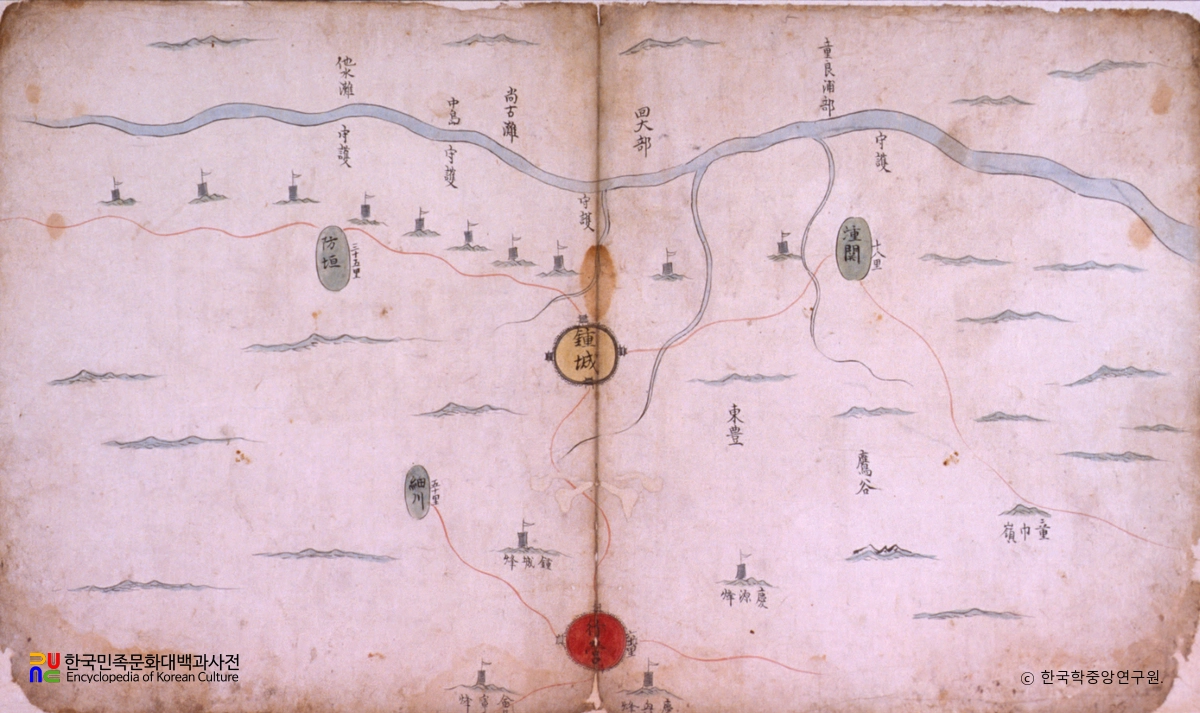 童良浦部
他水灘
中島
尚古灘
回大部
守護
守護
守護
守護
防垣
三十五里
潼關
十八里
鍾城
東豊
鷹谷
細川
五十里
童巾嶺
鍾城烽
慶源烽
行營
한국민족문화대백과사전
Encyclopedia of Korean Culture
ⓒ 한국학중앙연구원.